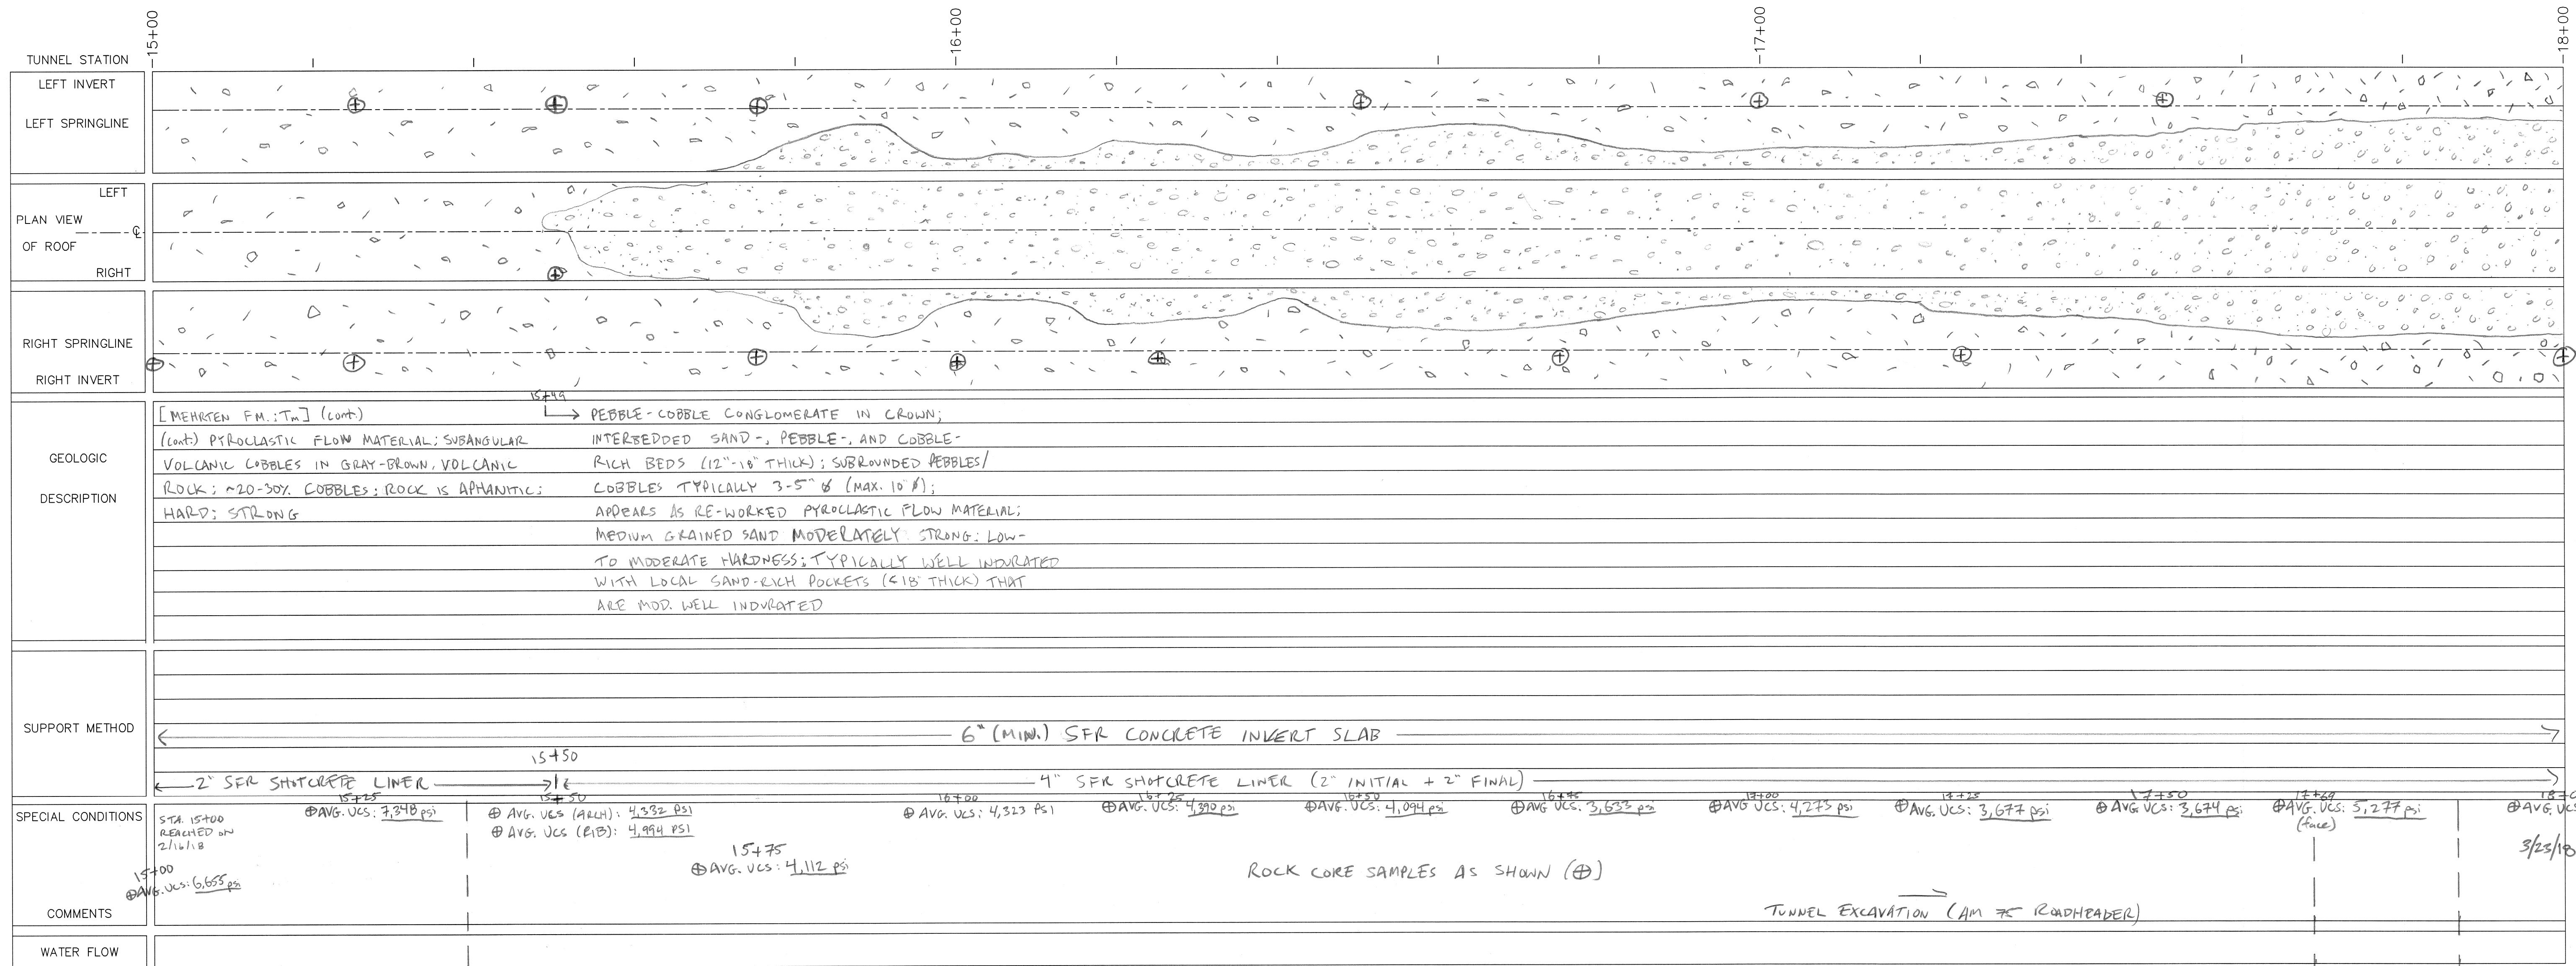 15+00
16+00
17+00
18+00
TUNNEL STATION
LEFT INVERT
LEFT SPRINGLINE
LEFT
PLAN VIEW
℄
OF ROOF
RIGHT
RIGHT SPRINGLINE
RIGHT INVERT
GEOLOGIC
DESCRIPTION
[MEHRTEN FM.; Tm] (cont.)
(cont.) PYROCLASTIC FLOW MATERIAL; SUBANGULAR
VOLCANIC COBBLES IN GRAY-BROWN, VOLCANIC
ROCK; ~20-30% COBBLES; ROCK IS APHANITIC;
HARD; STRONG
15+49
PEBBLE-COBBLE CONGLOMERATE IN CROWN;
INTERBEDDED SAND-, PEBBLE-, AND COBBLE-
RICH BEDS (12"-18" THICK); SUBROUNDED PEBBLES/
COBBLES TYPICALLY 3-5" Ø (MAX. 10" Ø);
APPEARS AS RE-WORKED PYROCLASTIC FLOW MATERIAL;
MEDIUM GRAINED SAND MODERATELY STRONG; LOW-
TO MODERATE HARDNESS; TYPICALLY WELL INDURATED
WITH LOCAL SAND-RICH POCKETS (<18" THICK) THAT
ARE MOD. WELL INDURATED
SUPPORT METHOD
6" (MIN.) SFR CONCRETE INVERT SLAB
15+50
2" SFR SHOTCRETE LINER
4" SFR SHOTCRETE LINER (2" INITIAL + 2" FINAL)
SPECIAL CONDITIONS
COMMENTS
STA. 15+00
REACHED ON
2/16/18
15+00
⊕AVG. UCS: 6,655 psi
15+25
⊕AVG. UCS: 7,348 psi
15+50
⊕ AVG. UCS (ARCH): 4,332 PSI
⊕ AVG. UCS (RIB): 4,994 PSI
15+75
⊕AVG. UCS: 4,112 psi
16+00
⊕AVG. UCS: 4,323 PSI
16+25
⊕AVG. UCS: 4,390 psi
16+50
⊕AVG. UCS: 4,094 psi
16+75
⊕AVG. UCS: 3,633 psi
17+00
⊕AVG UCS: 4,273 psi
17+25
⊕AVG. UCS: 3,677 psi
17+50
⊕AVG. UCS: 3,674 psi
17+69
⊕AVG. UCS: 5,277 psi
(face)
⊕AVG. UCS
3/23/18
ROCK CORE SAMPLES AS SHOWN (⊕)
TUNNEL EXCAVATION (AM 75 ROADHEADER)
WATER FLOW